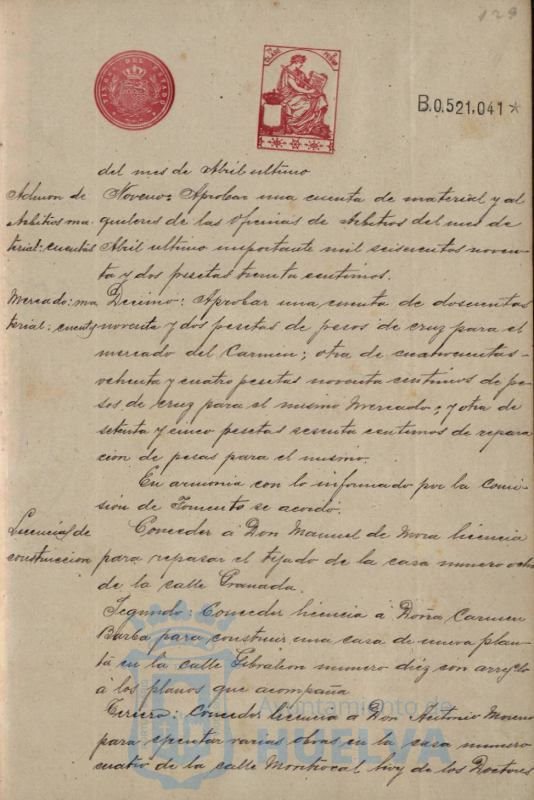 129
TIMBRE DEL ESTADO
B.0.521,041*
del mes de Abril ultimo
Admon de
Arbitrios ma
terial: cuentas
Noveno: Aprobar una cuenta de material y al
quileres de las Oficinas de Arbitrios del mes de
Abril ultimo importante mil seiscientos noven-
ta y dos pesetas treinta centimos.
Mercado: ma
terial: cuentas
Decimo: Aprobar una cuenta de doscuentas
noventa y dos pesetas de pesos de cruz para el
mercado del Carmen; otra de cuatrocuentas-
ochenta y cuatro pesetas noventa centimos de pe-
sos de cruz para el mismo Mercado; y otra de
setenta y cinco pesetas sesenta centimos de repara
cion de pesas para el mismo.
En armonia con lo informado por la Comi-
sion de Fomento se acordó.
Licencias de
construccion
Conceder á Don Manuel de Mora licencia
para repasar el tejado de la casa numero ocho
de la calle Granada.
Segundo: Conceder licencia á Doña Carmen
Barba para construir una casa de nueva plan-
ta en la calle Gibraleon numero diez con arreglo
á los planos que acompaña
Tercero: Conceder licencia á Don Antonio Moreno
para ejecutar varias obras en la casa numero
cuatro de la calle Montrocal hoy de los Doctores
Ayuntamiento de
HUELVA